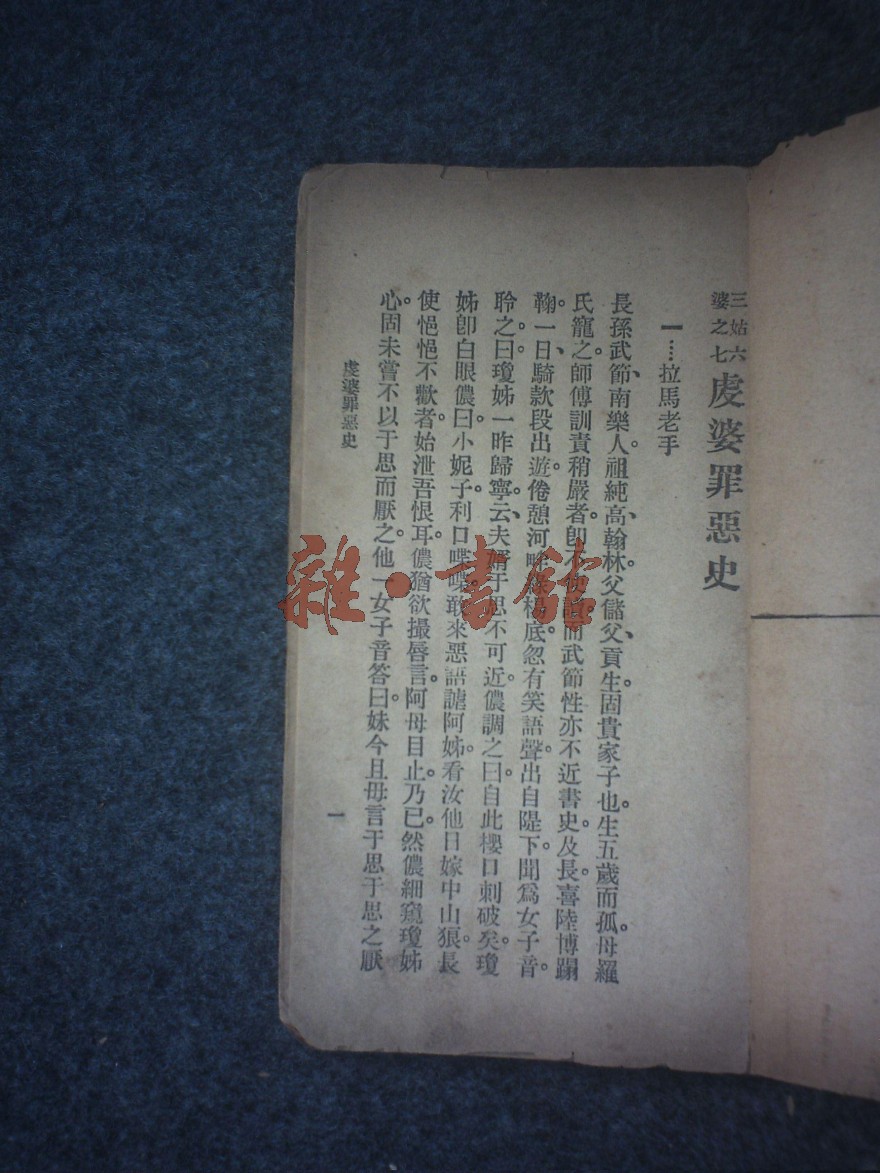 三姑六
婆之七
虔婆罪惡史
一……拉馬老手
長孫武節、南樂人。祖純高、翰林。父儲父、貢生。固貴家子也。生五歲而孤。母羅
氏寵之。師傅訓責稍嚴者。卽不使讀。而武節性亦不近書史。及長。喜陸博蹋
鞠。一日、騎款段出遊。倦憩河畔綠楊底。忽有笑語聲。出自隄下。聞爲女子音。
聆之。曰。瓊姊一昨歸寧。云、夫婿于思不可近。儂調之曰。自此櫻口刺破矣。瓊
姊卽白眼儂曰。小妮子利口喋喋。敢來惡語謔阿姊。看汝他日嫁中山狼。長
使悒悒不歡者。始泄吾恨耳。儂猶欲撮唇言。阿母目止。乃已。然儂細窺瓊姊
心。固未嘗不以于思而厭之。他一女子音答曰。妹今且毋言于思。于思之厭
虔婆罪惡史
一
雜·書館